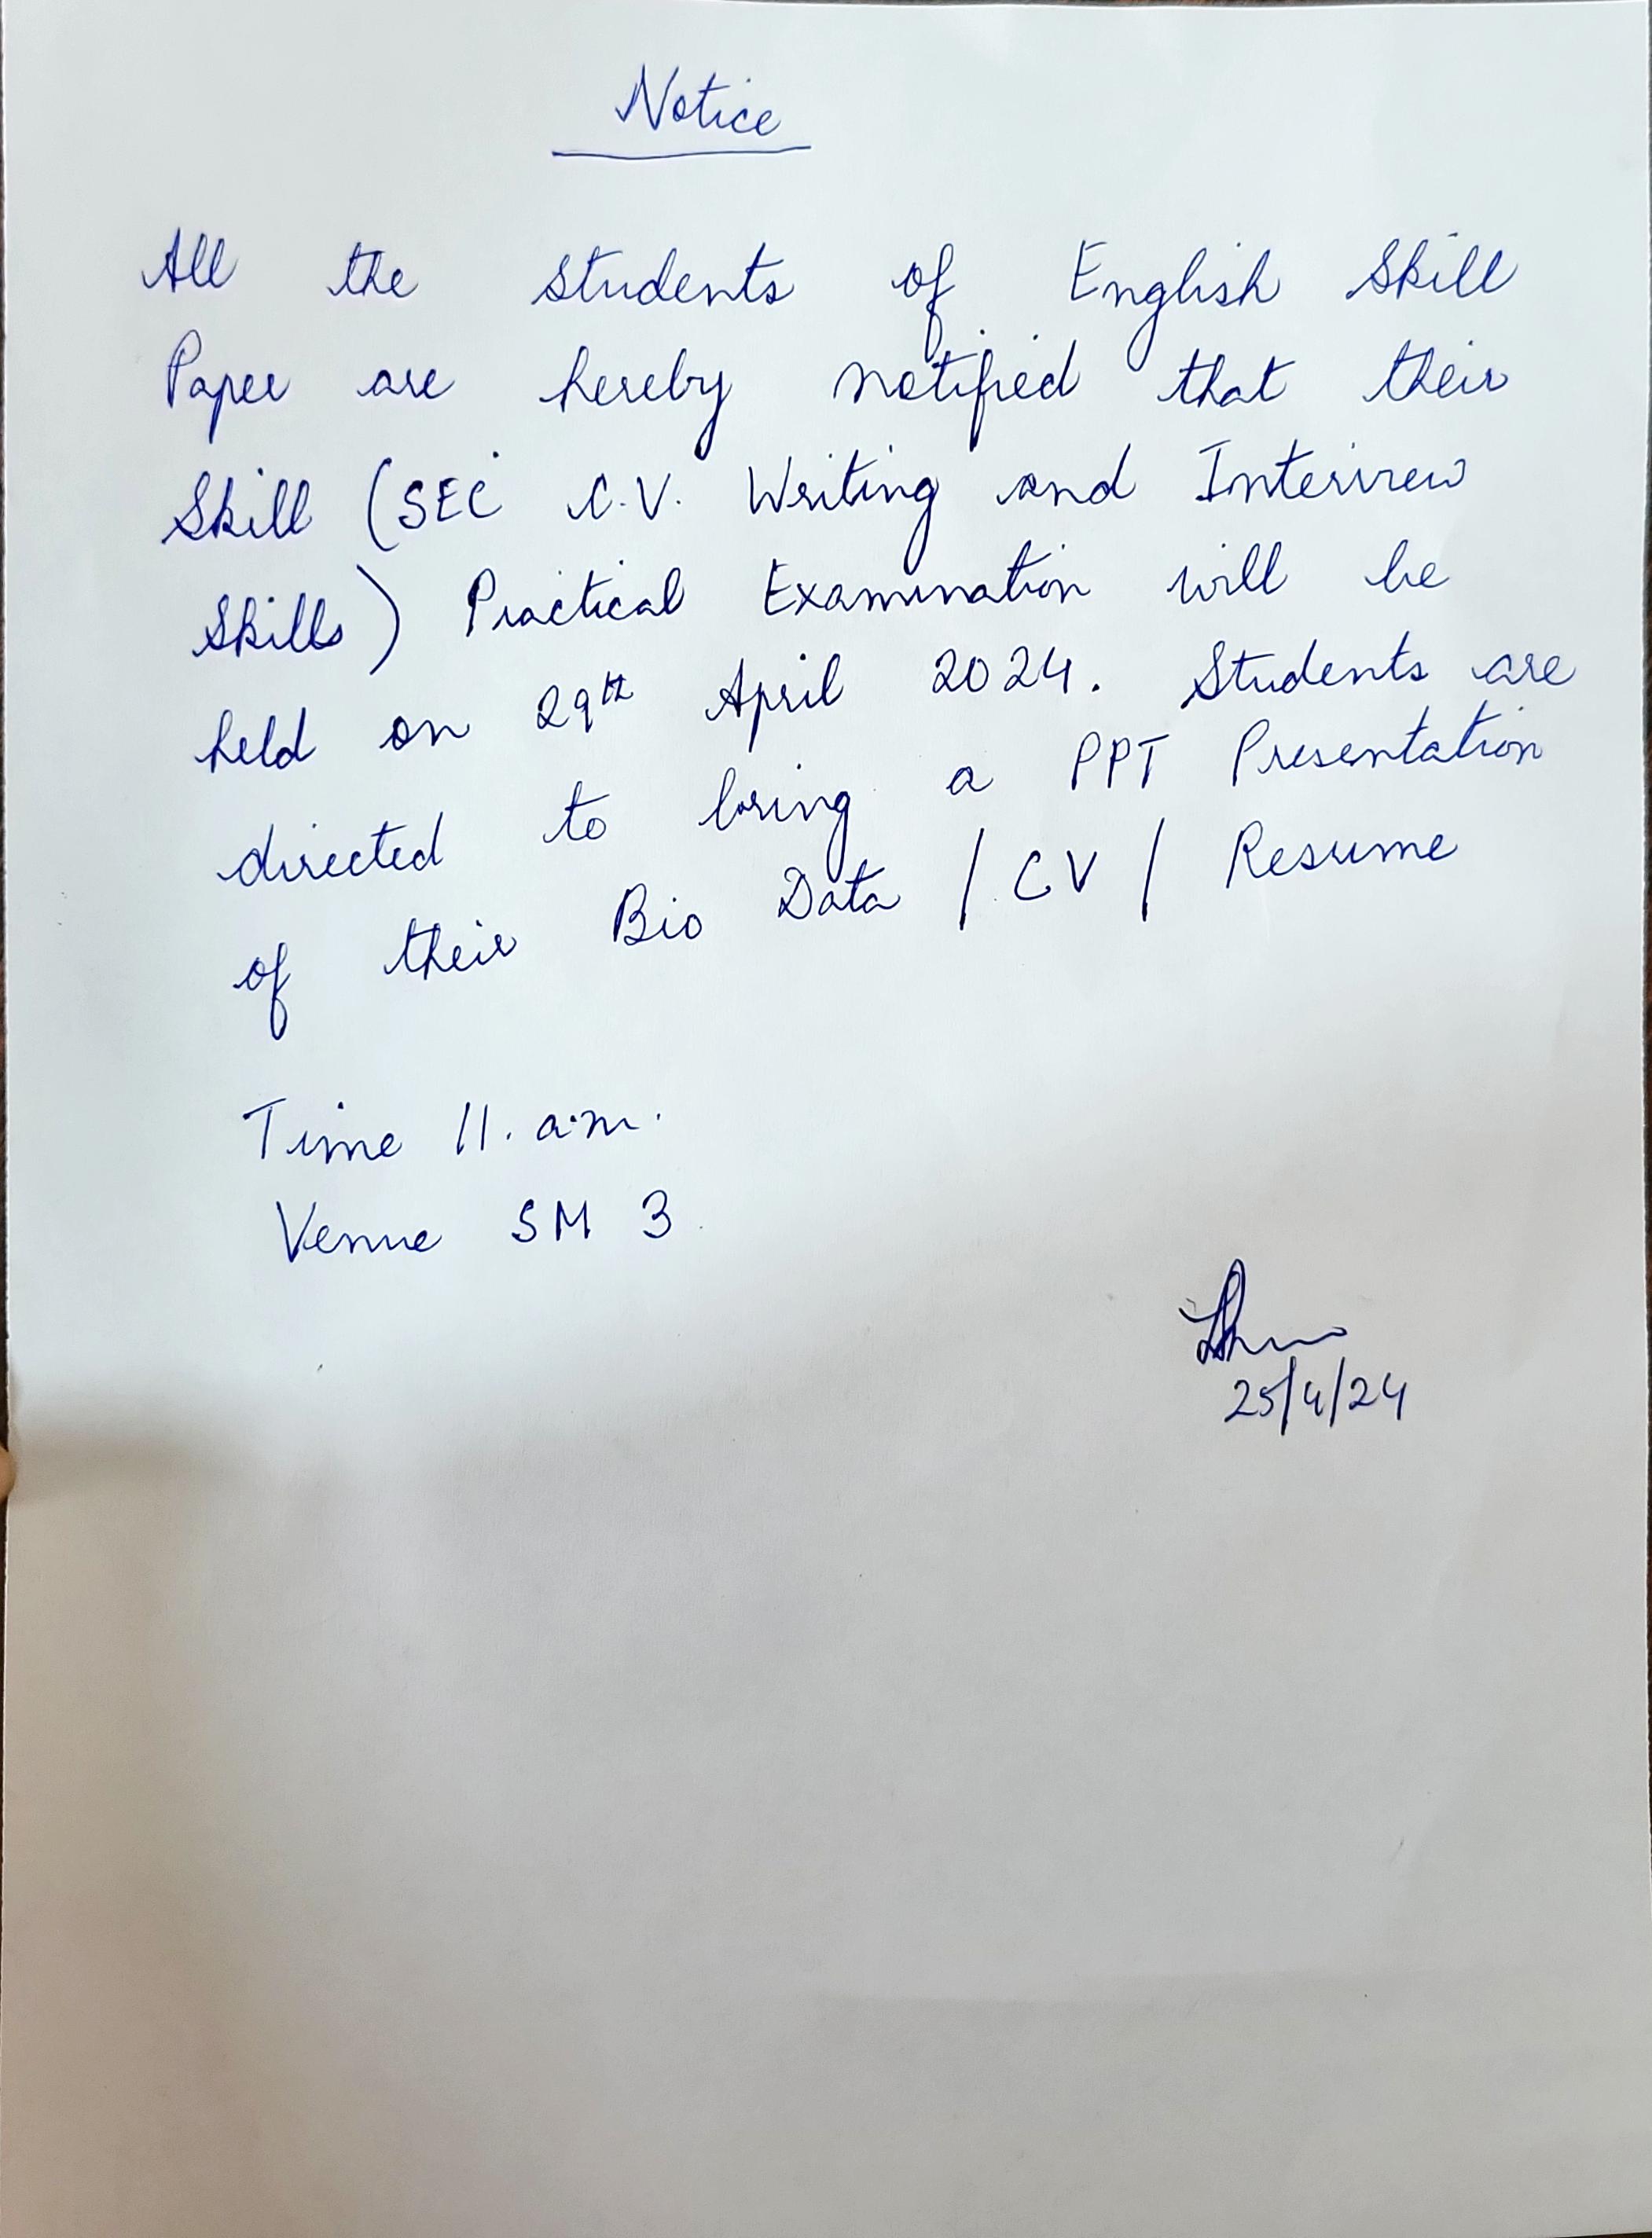 Notice
All the students of English Skill
Paper are hereby notified that their
Skill (SEC C.V. Writing and Interview
Skills) Practical Examination will be
held on 29th April 2024. Students are
directed to bring a PPT Presentation
of their Bio Data / CV / Resume
Time 11. a.m.
Venue SM 3
25/4/24